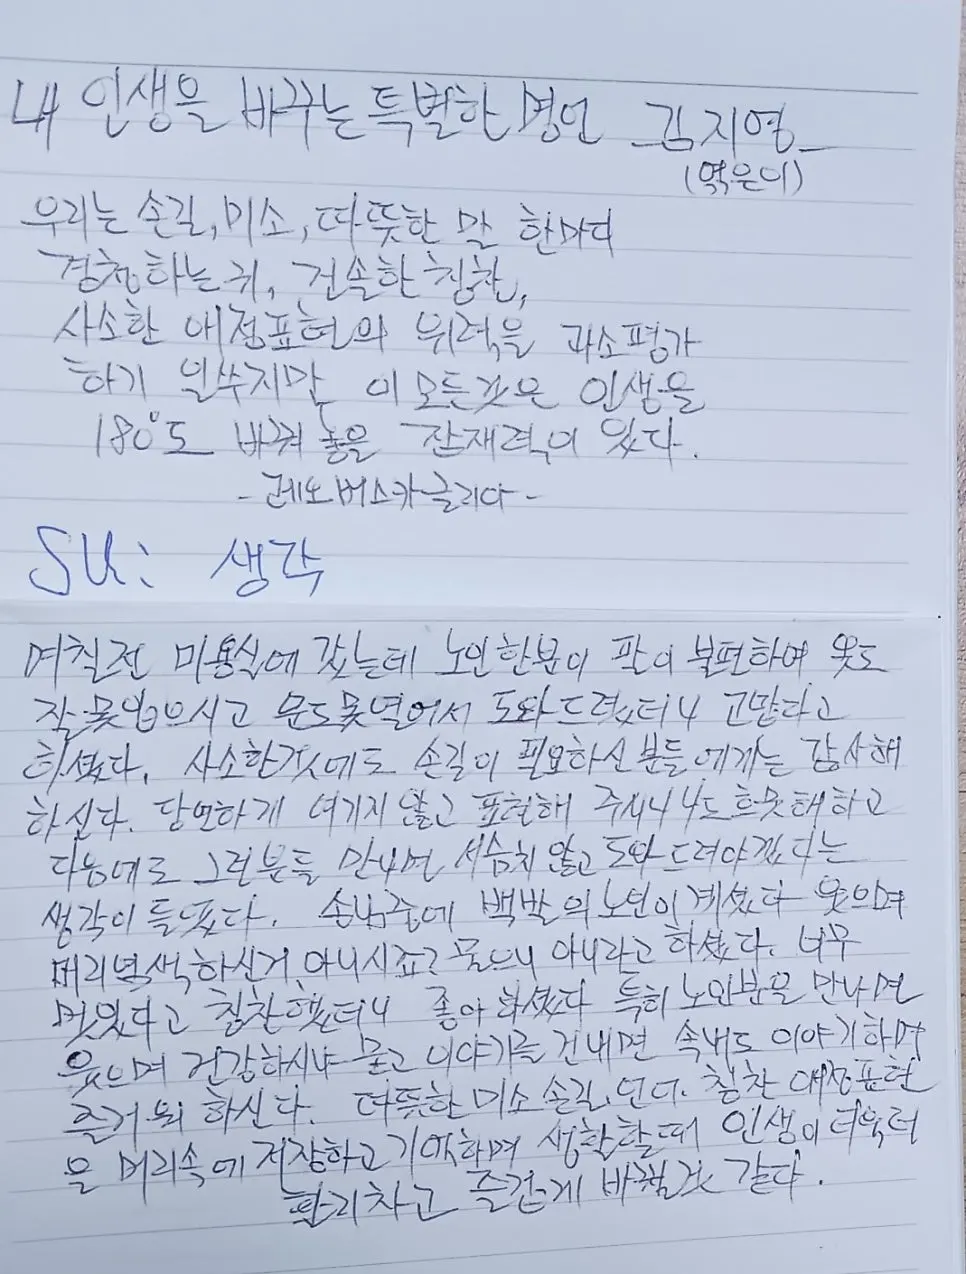 내 인생을 바꾸는 특별한 명언 김지영
(엮은이)
우리는 손길, 미소, 따뜻한 말 한마디
경청하는 귀, 건속한 칭찬,
사소한 애정표현의 위력을 과소평가
하기 일쑤지만 이 모든것은 인생을
180°도 바꿔 놓을 잔재력이 있다.
- 레오버스카글리다 -
SU: 생각
며칠전 미용실에 갔는데 노인한분이 팔이 불편하여 옷도
잘못입으시고 문도못열어서 도와드렸더니 고맙다고
하셨다. 사소한것에도 손길이 필요하신분들에게는 감사해
하신다. 당연하게 여기지 않고 표현해 주시니 나도 흐뭇해하고
다음에도 그런분들 만나면 서슴치 않고 도와 드려야겠다는
생각이 들었다. 손님중에 백발의노인이 계셨다 웃으며
머리염색하신거 아니시죠? 물으니 아니라고 하셨다. 너무
멋있다고 칭찬했더니 좋아 하셨다 특히 노인분을 만나면
웃으며 건강하시냐 묻고 이야기를 건내면 속내도 이야기하며
즐거워 하신다. 따뜻한 미소 손길, 언어. 칭찬 애정표현
을 머리속에 저장하고 기억하며 생활할때 인생이 더욱더
활기차고 즐겁게 바뀔것 같다.